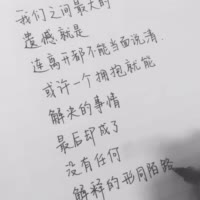 我们之间最大的
遗憾就是
连离开都不能当面说清.
或许一个拥抱就能
解决的事情
最后却成了
没有任何
解释的形同陌路